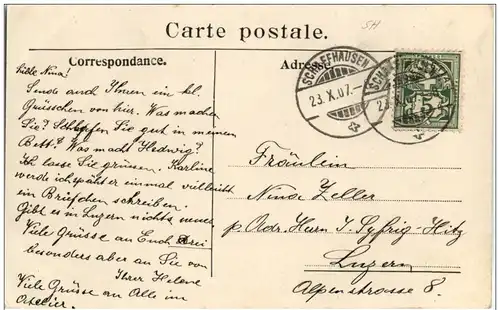 Carte postale.
SH
Correspondance.
Adresse
SCHAFFHAUSEN
23.X.07.–
5
Liebe Nina!
Sende auch Ihnen ein kl.
Grüsschen von hier. Was machen
Sie? Schlafen Sie gut in meinem
Bett? Was macht Hedwig?
Ich lasse Sie grüssen. Karline
werde ich später einmal vielleicht
ein Briefchen schreiben.
Gibt es in Luzern nichts neues
Viele Grüsse an Euch Drei
besonders aber an Sie von
Ihrer Helene
Viele Grüsse an Alle im
Atelier.
Fräulein
Nina Zeller
p. Adr. Herrn J. Syfrig-Hitz
Luzern
Alpenstrasse 8.